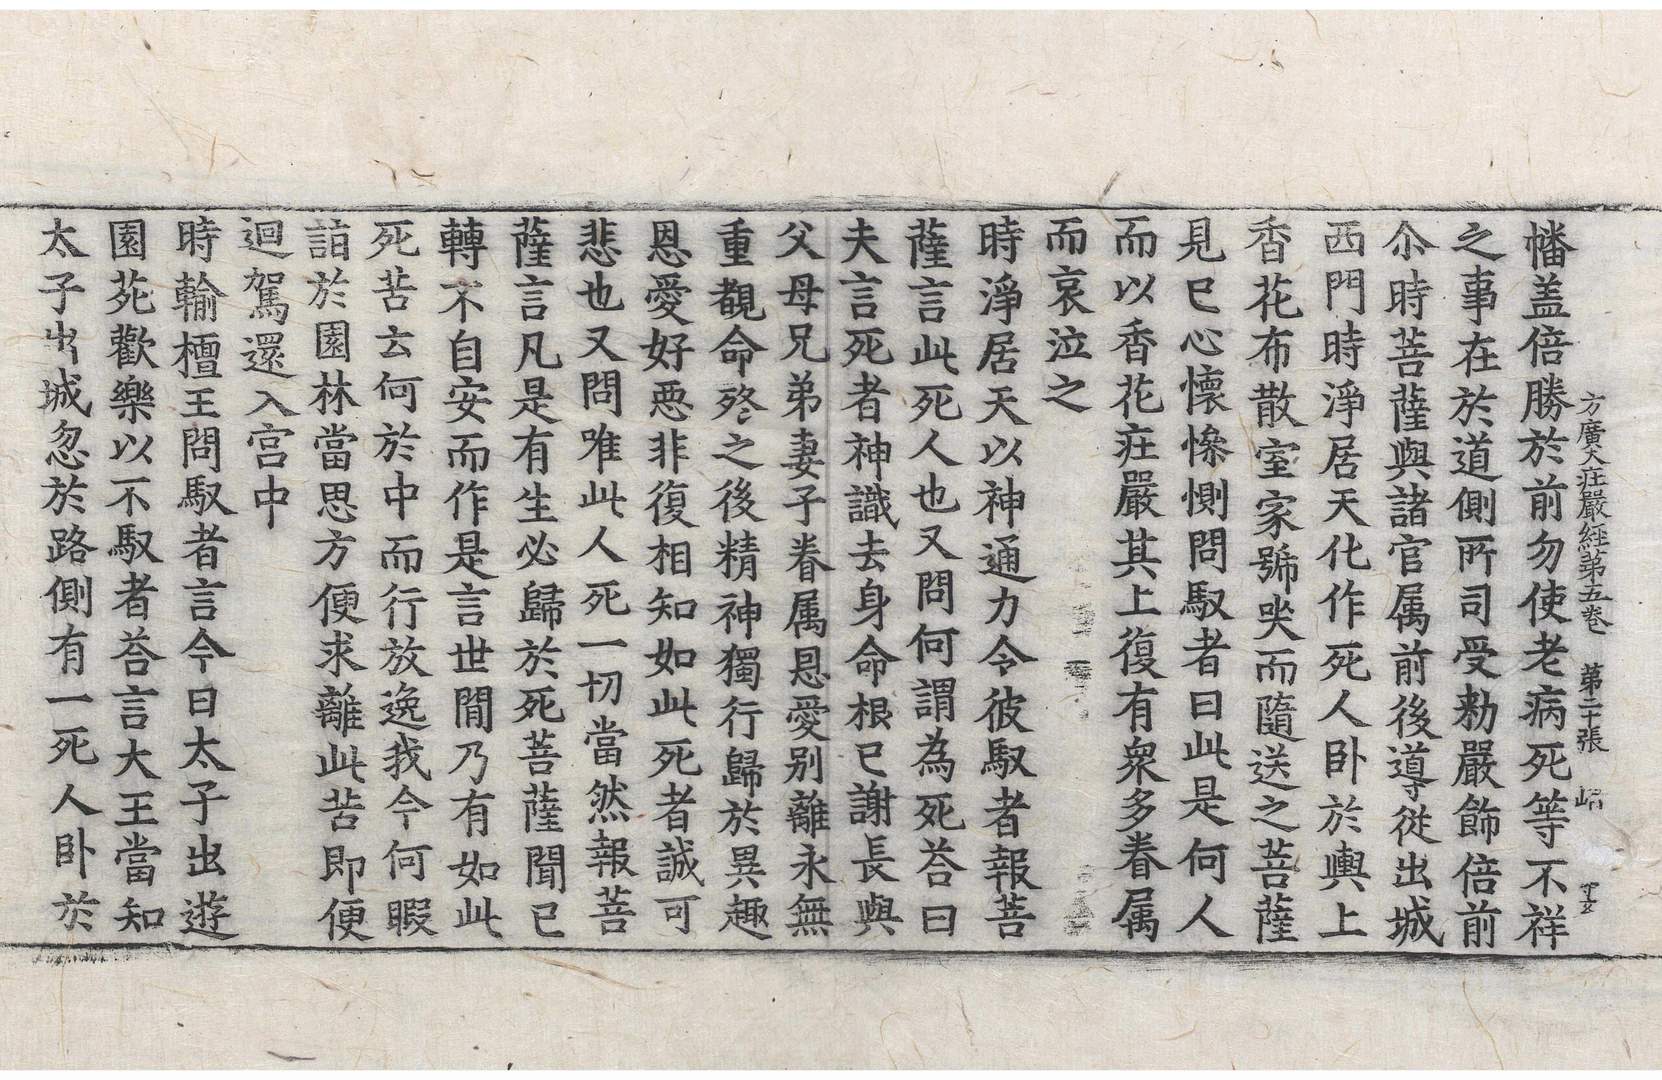 方廣大荘嚴經第五卷 第二十張 㟧
幡盖倍勝於前勿使老病死等不祥
之事在於道側所司受勑嚴飾倍前
尒時菩薩與諸官属前後導從出城
西門時淨居天化作死人卧於輿上
香花布散室家號哭而隨送之菩薩
見已心懷慘惻問馭者曰此是何人
而以香花荘嚴其上復有衆多眷属
而哀泣之
時淨居天以神通力令彼馭者報菩
薩言此死人也又問何謂為死荅曰
夫言死者神識去身命根已謝長與
父母兄弟妻子眷属恩愛别離永無
重覩命終之後精神獨行歸於異趣
恩愛好惡非復相知如此死者誠可
悲也又問唯此人死一切當然報菩
薩言凡是有生必歸於死菩薩聞已
轉不自安而作是言世間乃有如此
死苦云何於中而行放逸我今何暇
詣於園林當思方便求離此苦即便
迴駕還入宫中
時輸檀王問馭者言今日太子出遊
園苑歡樂以不馭者荅言大王當知
太子出城忽於路側有一死人卧於